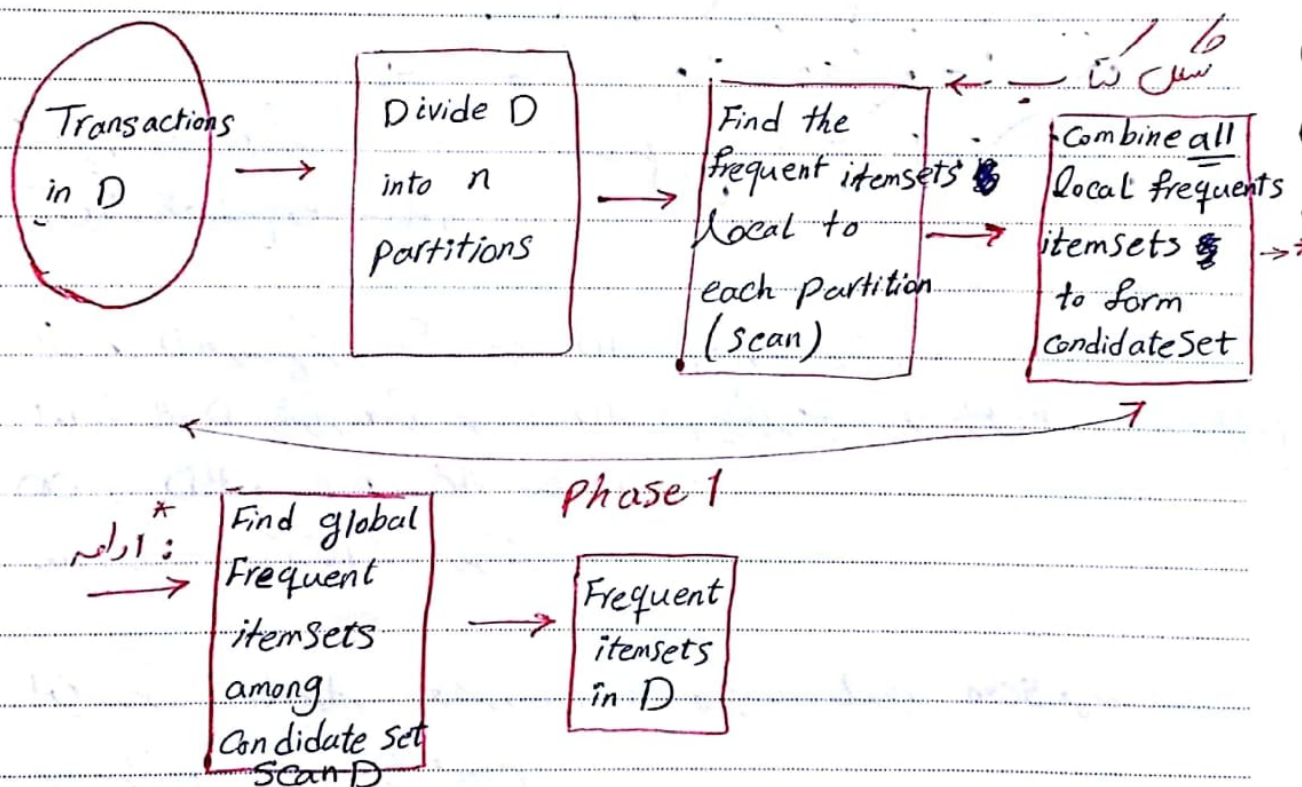 شکل کتاب
Transactions
in D
Divide D
into n
partitions
Find the
frequent itemsets
local to
each partition
(scan)
Combine all
local frequents
itemsets
to form
condidate set
Phase 1
* ادامه :
Find global
Frequent
itemsets
among
Condidate set
Scan D
Frequent
itemsets
in D